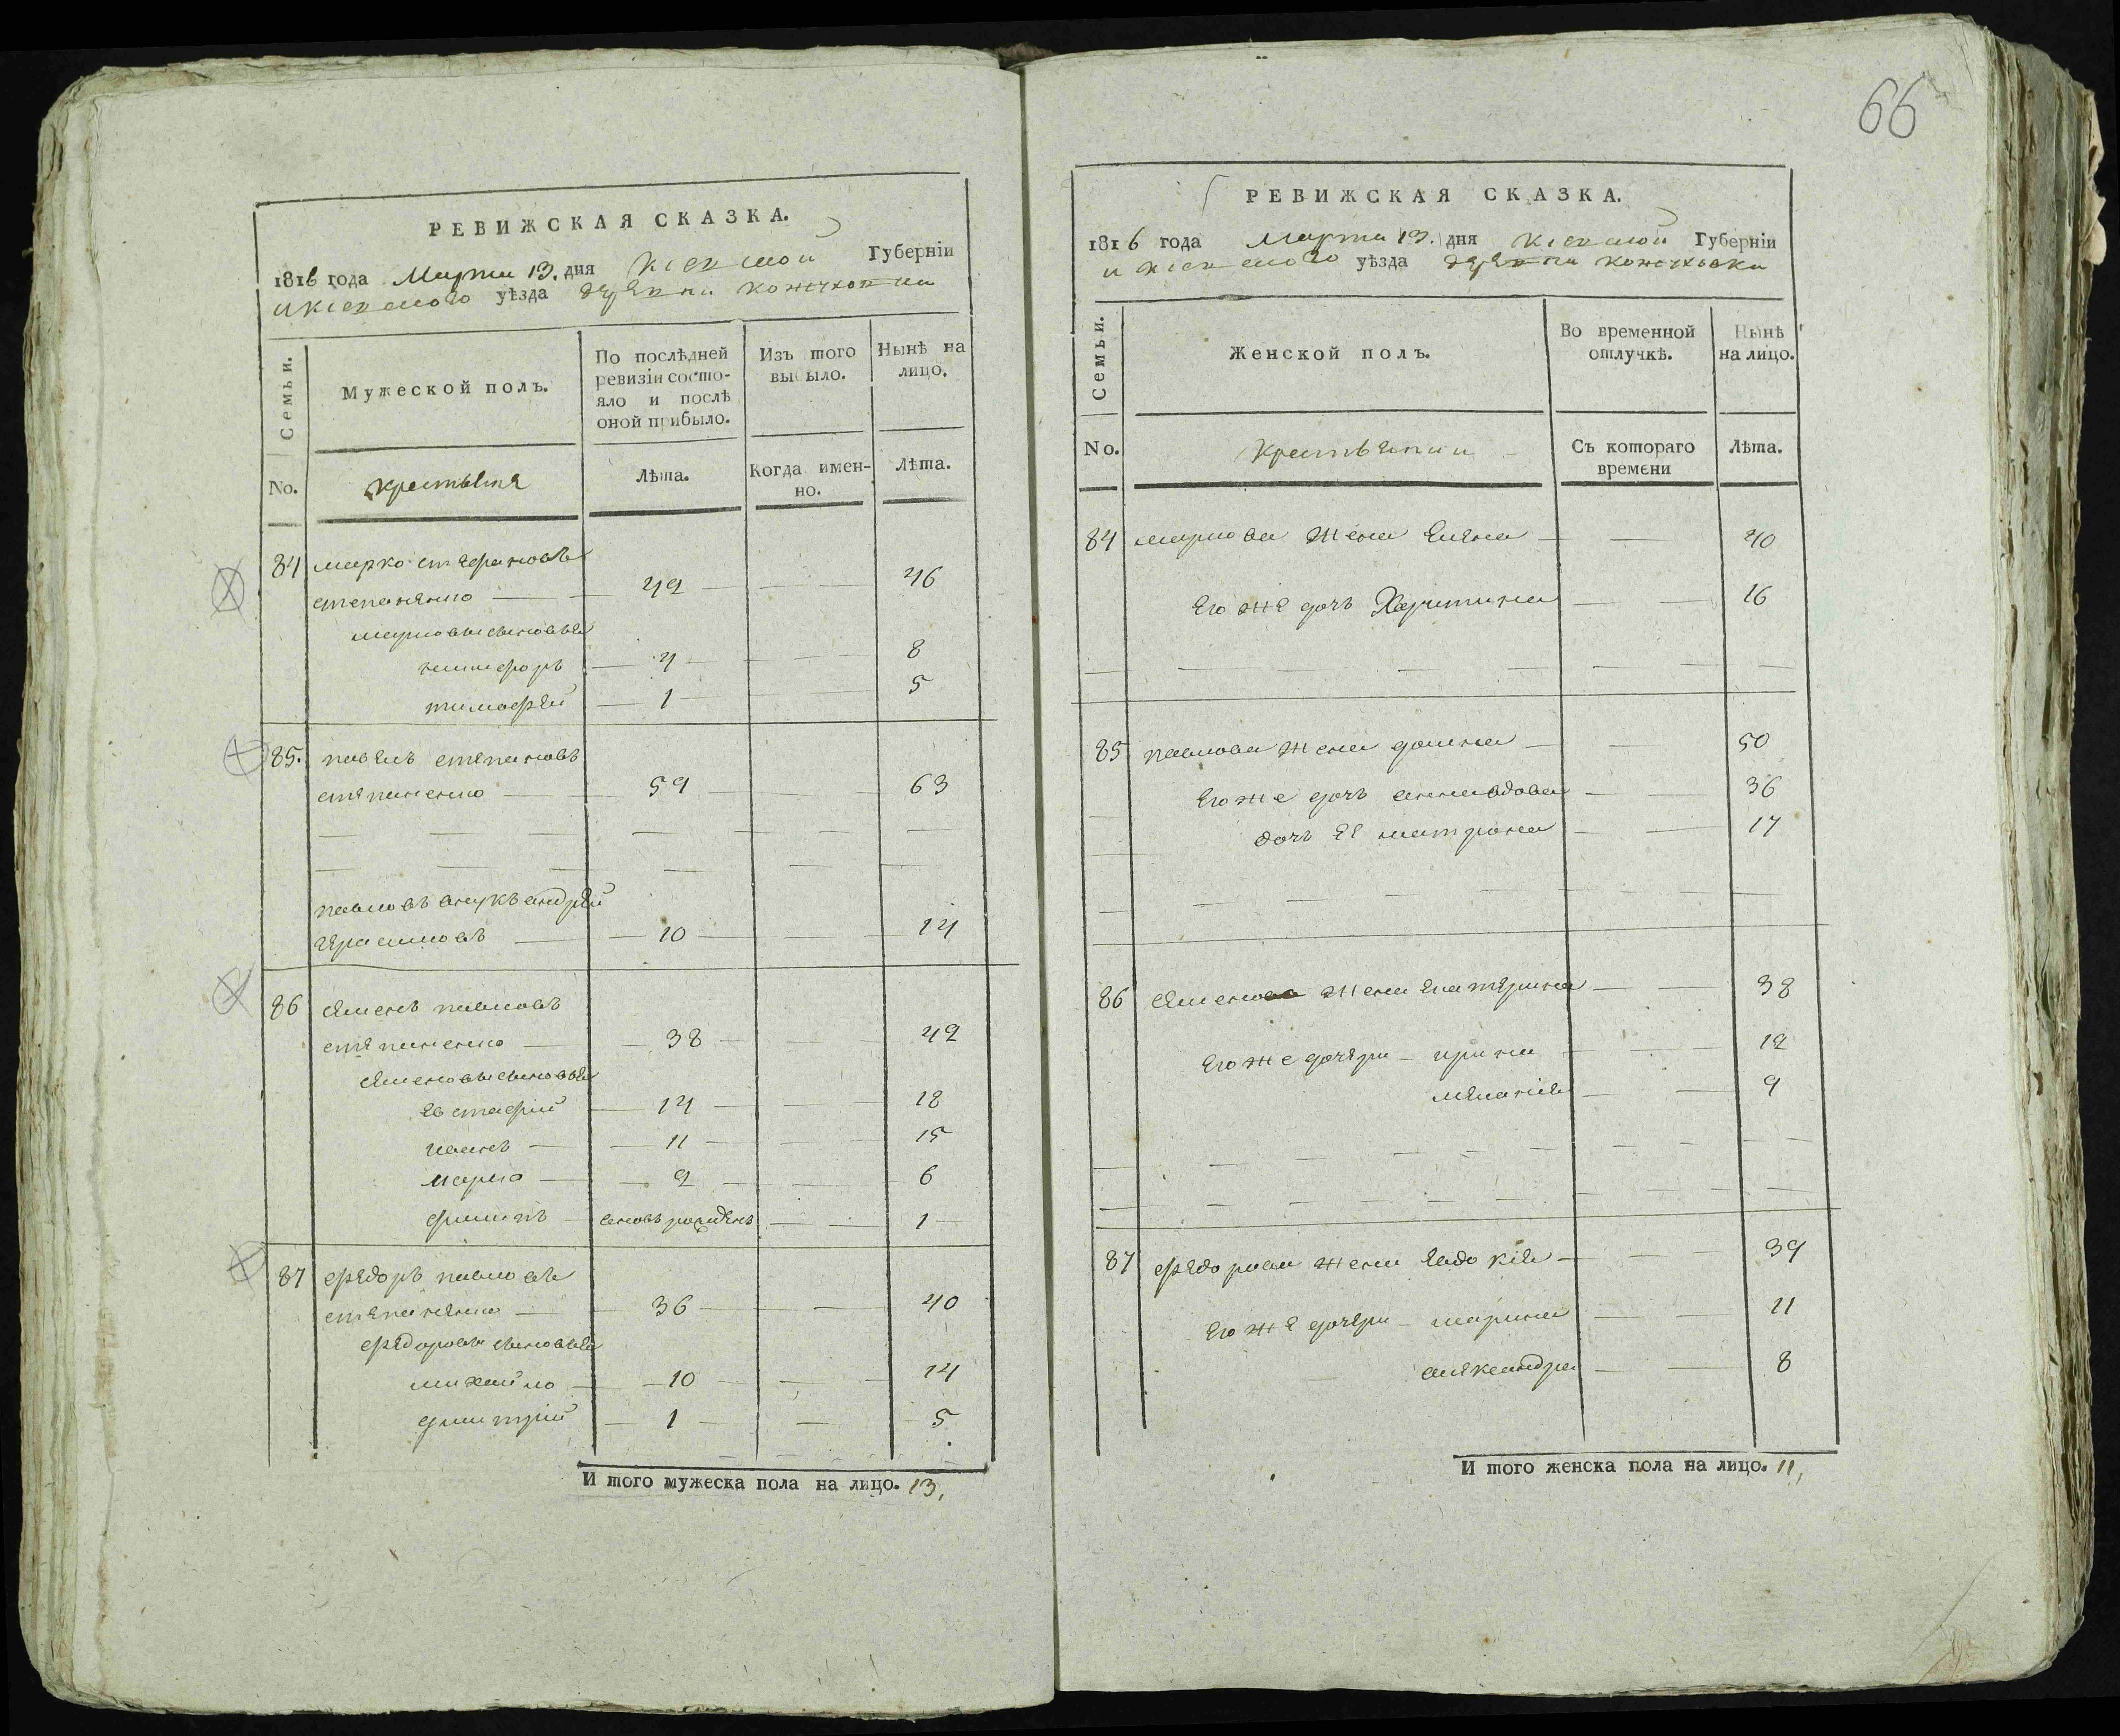 66
РЕВИЖСКАЯ СКАЗКА.
1816 года Марта 13. дня Кіевской Губерніи
и кіевского уѣзда деревни кожуховки
Семьи.
Мужеской полъ.
По послѣдней ревизіи состояло и послѣ оной прибыло.
Изъ того выбыло.
Нынѣ на лицо.
No.
крестьяне
Лѣта.
Когда именно.
Лѣта.
84 марко стефановъ
степаненко — 42 — 46
марковы сыновья
никифоръ — 4 — 8
тимофей — 1 — 5
85. павелъ степановъ
степаненко — 59 — 63
павловъ внукъ андрей
герасимовъ — 10 — 14
86 семенъ павловъ
степаненко — 38 — 42
семеновы сыновья
евстафий — 14 — 18
иванъ — 11 — 15
марко — 2 — 6
филипъ — вновь рожденъ — 1
87 федоръ павловъ
степаненко — 36 — 40
федоровы сыновья
михайло — 10 — 14
дмитрій — 1 — 5
И того мужеска пола на лицо. 13,
РЕВИЖСКАЯ СКАЗКА.
1816 года Марта 13. дня Кіевской Губерніи
и кіевского уѣзда деревни кожуховки
Семьи.
Женской полъ.
Во временной отлучкѣ.
Нынѣ на лицо.
No.
крестьянки
Съ котораго времени
Лѣта.
84 маркова жена елена — 40
его же дочь Харитина — 16
85 павлова жена домна — 50
его же дочь анна вдова — 36
дочь ее матрона — 17
86 семенова жена екатерина — 38
его же дочери — ирина — 12
меланія — 9
87 федорова жена евдокія — 39
его же дочери — марина — 11
александра — 8
И того женска пола на лицо. 11,